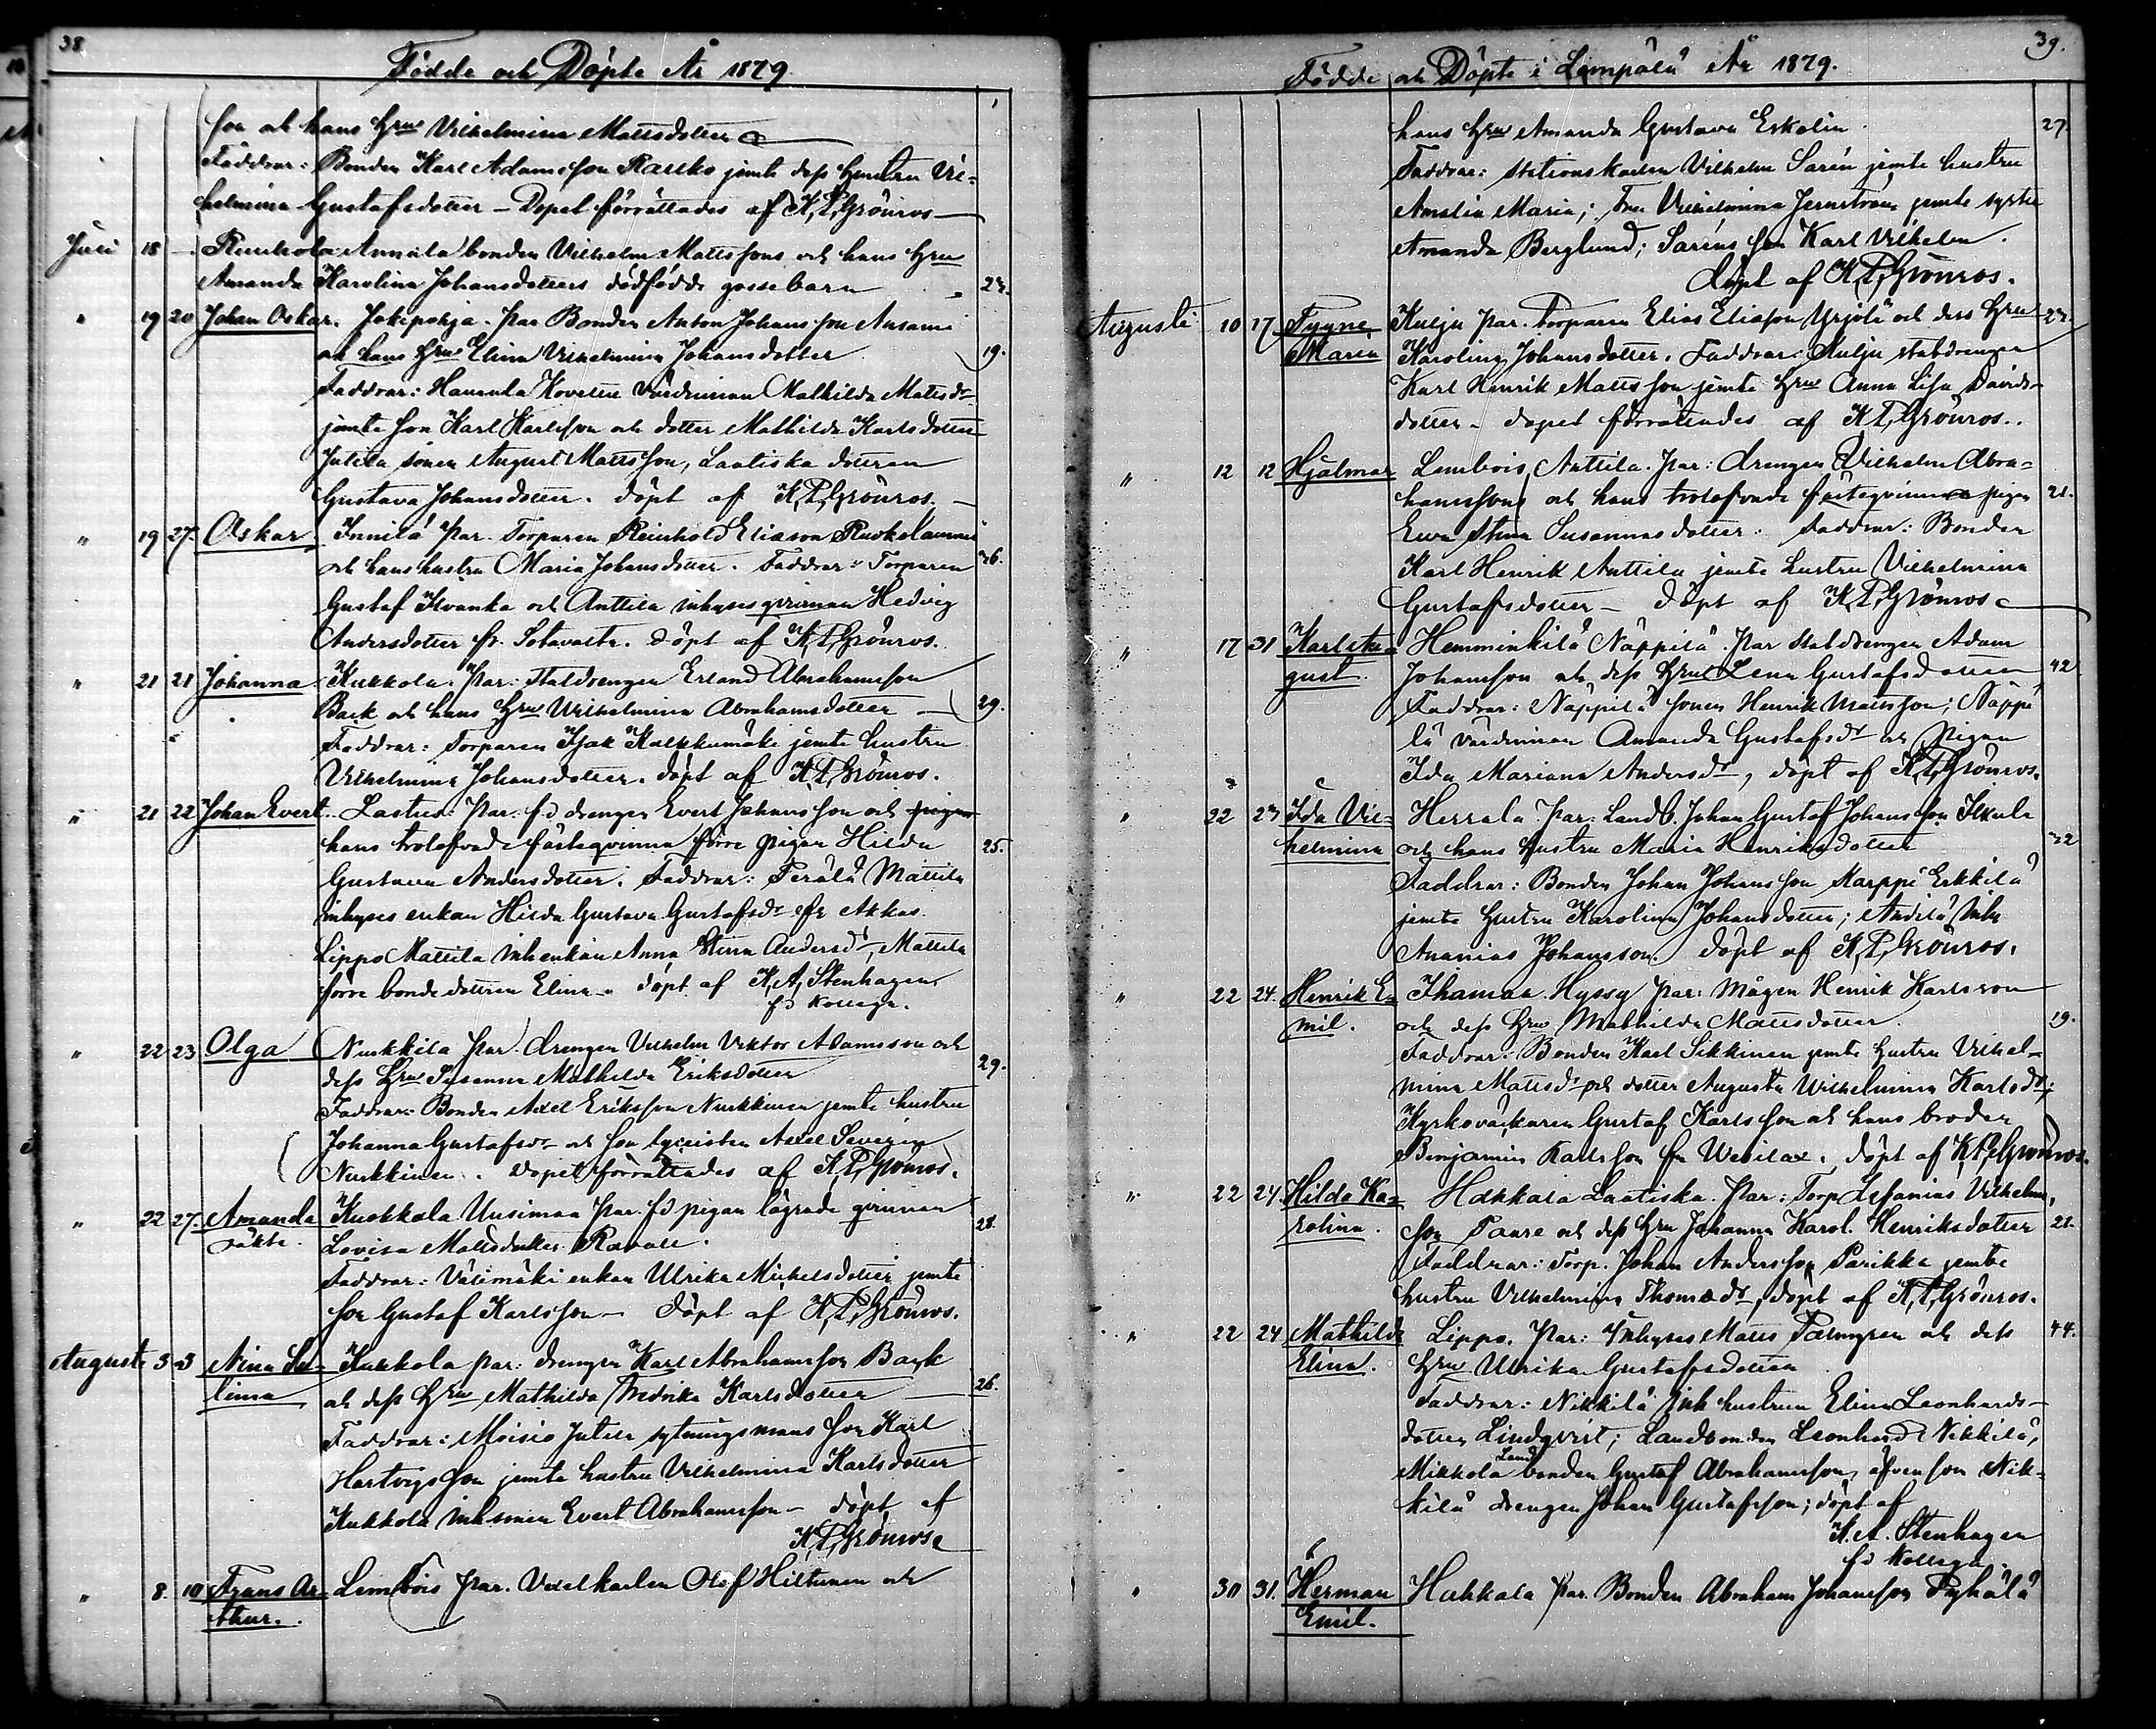 38
Födde och Döpte År 1879
son och hans Hru Vilhelmina Mattsdotter
Faddrar: Bonden Karl Adamsson Rallko jemte dess hustru Vil-
helmina Gustafsdotter - Dopet förrättades af K,T,Grönros
Juli 18 - Annila bonden Vilhelm Mattssons och hans Hru
Amanda Karolina Johansdotters dödfödde gossebarn
" 19 20 Johan Oskar. Jokipohja. Par Bonden Anton Johansson Ansami
och hans Hru Elina Vilhelmina Johansdotter 19.
Faddrar: Hauvala Värdinnan Mathilda Matsdr
jemte son Karl Karlsson och dotter Mathilda Karlsdotter
Jutila sonen August Mattsson, Laatiska dottren
Gustava Johansdotter. döpt af K,T,Grönros.
" 19 27. Oskar Innilä Par. Torparen Reinhold Eliasson
och hans hustru Maria Johansdotter. Faddrar: Torparen
Gustaf Kvanka och Anttila inhysesqvinnan Hedvig
Andersdotter fr. Sotavalta. döpt af K,T,Grönros.
" 21 21 Johanna Kukkola. Par: Staldrengen Erland Abrahamsson
Back och hans Hru Vilhelmina Abrahamsdotter 29.
Faddrar: Torparen Isak Kalkkumäki jemte hustru
Vilhelmina Johansdotter. döpt af K,T,Grönros.
" 21 22 Johan Evert. Par: fd drengen Evert Johansson och pigan
hans trolofvade fästeqvinna förre pigan Hilda 25.
Gustava Andersdotter. Faddrar: Perälä Mattila
inhyses enkan Hilda Gustava Gustafsdr fr Akkas
Lippo Mattila inh enkan Anna Stina Andersdr, Mattila
förre bonde dottren Elina. döpt af K,A,Stenhagen
fd Kollega.
" 22 23 Olga Nurkkila Par. drengen Vilhelm Viktor Adamsson och
dess Hru Susanna Mathilda Eriksdotter 29.
Faddrar: Bonden Axel Eriksson Nurkkinen jemte hustru
Johanna Gustafsdr och son lyceisten Axel Severin
Nurkkinen. Dopet förrättades af K,T,Grönros.
" 22 27. Amanda Kuokkala Uusimaa Par. fd pigan lägrade qvinnan 28.
oäkta. Lovisa Mattsdotter
Faddrar: Välimäki enkan Ulrika Michelsdotter jemte
son Gustaf Karlsson - döpt af K,T,Grönros.
Augusti 3 3 Nina Se- Kukkola par: drengen Karl Abrahamsson Back
lima och dess Hru Mathilda Fredrika Karlsdotter 26.
Faddrar: Moisio Jutila sytningsmans son Karl
Hartvigsson jemte hustru Vilhelmina Karlsdotter
Kukkola inh sonen Evert Abrahamsson - döpt af
K,T,Grönros
" 8. 10 Frans Ar- Lembois par. Vexelkarlen Olof Hiltunen och
thur.
39.
Födde och Döpte i Lempälä År 1879.
hans Hru Amanda Gustava Eskolin 27.
Faddrar: Stationskarlen Vilhelm Sarén jemte hustru
Amalia Maria; Fru Vilhelmina Jernström jemte syster
Amanda Berglund; Saréns son Karl Vilhelm.
döpt af K,T,Grönros.
Augusti 10 17. Tyyne Kulju par. torparen Elias Eliasson Yrjölä och dess Hru
Maria Karolina Johansdotter. Faddrar: Kulju statdrengen
Karl Henrik Mattsson jemte Hru Anna Lisa Davids-
dotter - dopet förrättades af K,T,Grönros.
" 12 12 Hjalmar Lembois, Anttila. Par: drengen Vilhelm Abra-
hamssons och hans trolofvade fästeqvinna pigan 21.
Eva Stina Susannasdotter. Faddrar: Bonden
Karl Henrik Anttila jemte hustru Vilhelmina
Gustafsdotter - döpt af K,T,Grönros
" 17 31 Karl Au- Hemminkilä Näppilä. Par statdrengen Adam
gust. Johansson och dess Hru Lena Gustafsdotter 42
Faddrar: Näppilä sonen Henrik Mattsson; Näppi
lä värdinnan Amanda Gustafsdr och Pigan
Ida Mariana Andersdr, döpt af K,T,Grönros.
" 22 23 Ida Vil- Herrala. Par: Landb. Johan Gustaf Johansson
helmina och hans hustru Maria Henriksdotter 32
Faddrar: Bonden Johan Johansson Marppi Erkkilä
jemte hustru Karolina Johansdotter; Inhs
Ananias Johansson. döpt af K,T,Grönros.
" 22 24. Henrik E- Ihamaa Hyssy par: Mågen Henrik Karlsson
mil. och dess Hru Mathilda Mattsdotter. 19.
Faddrar: Bonden Karl Sikkinen jemte hustru Vilhel-
mina Mattsdr och dotter Augusta Vilhelmina Karlsdr;
Kyrkoväktaren Gustaf Karlsson och hans broder
Benjamin Karlsson fr Vesilax. döpt af K,T,Grönros.
" 22 24 Hilda Ka- Hakkala Laatiska. Par: Torp Zefanias Vilhelms
rolina. son Paure och dess Hru Johanna Karol. Henriksdotter 21.
Faddrar: Torp. Johan Andersson Parikka jemte
hustru Vilhelmina Thomædr, döpt af K,T,Grönros.
" 22 24 Mathilda Lippo. Par: Inhyses Matts Palmgren och dess 44.
Elina. Hru Ulrika Gustafsdotter
Faddrar: Nikkilä inh hustrun Elina Leonhards-
dotter Lindqvist; Landbonden Leonhard Nikkilä,
Mikkola Landbonden Gustaf Abrahamsson, äfvensom Nik-
kilä drengen Johan Gustafsson; döpt af
K.A. Stenhagen
fd Kollega
" 30 31. Herman Hakkala par. Bonden Abraham Johansson Pyhälä
Emil.